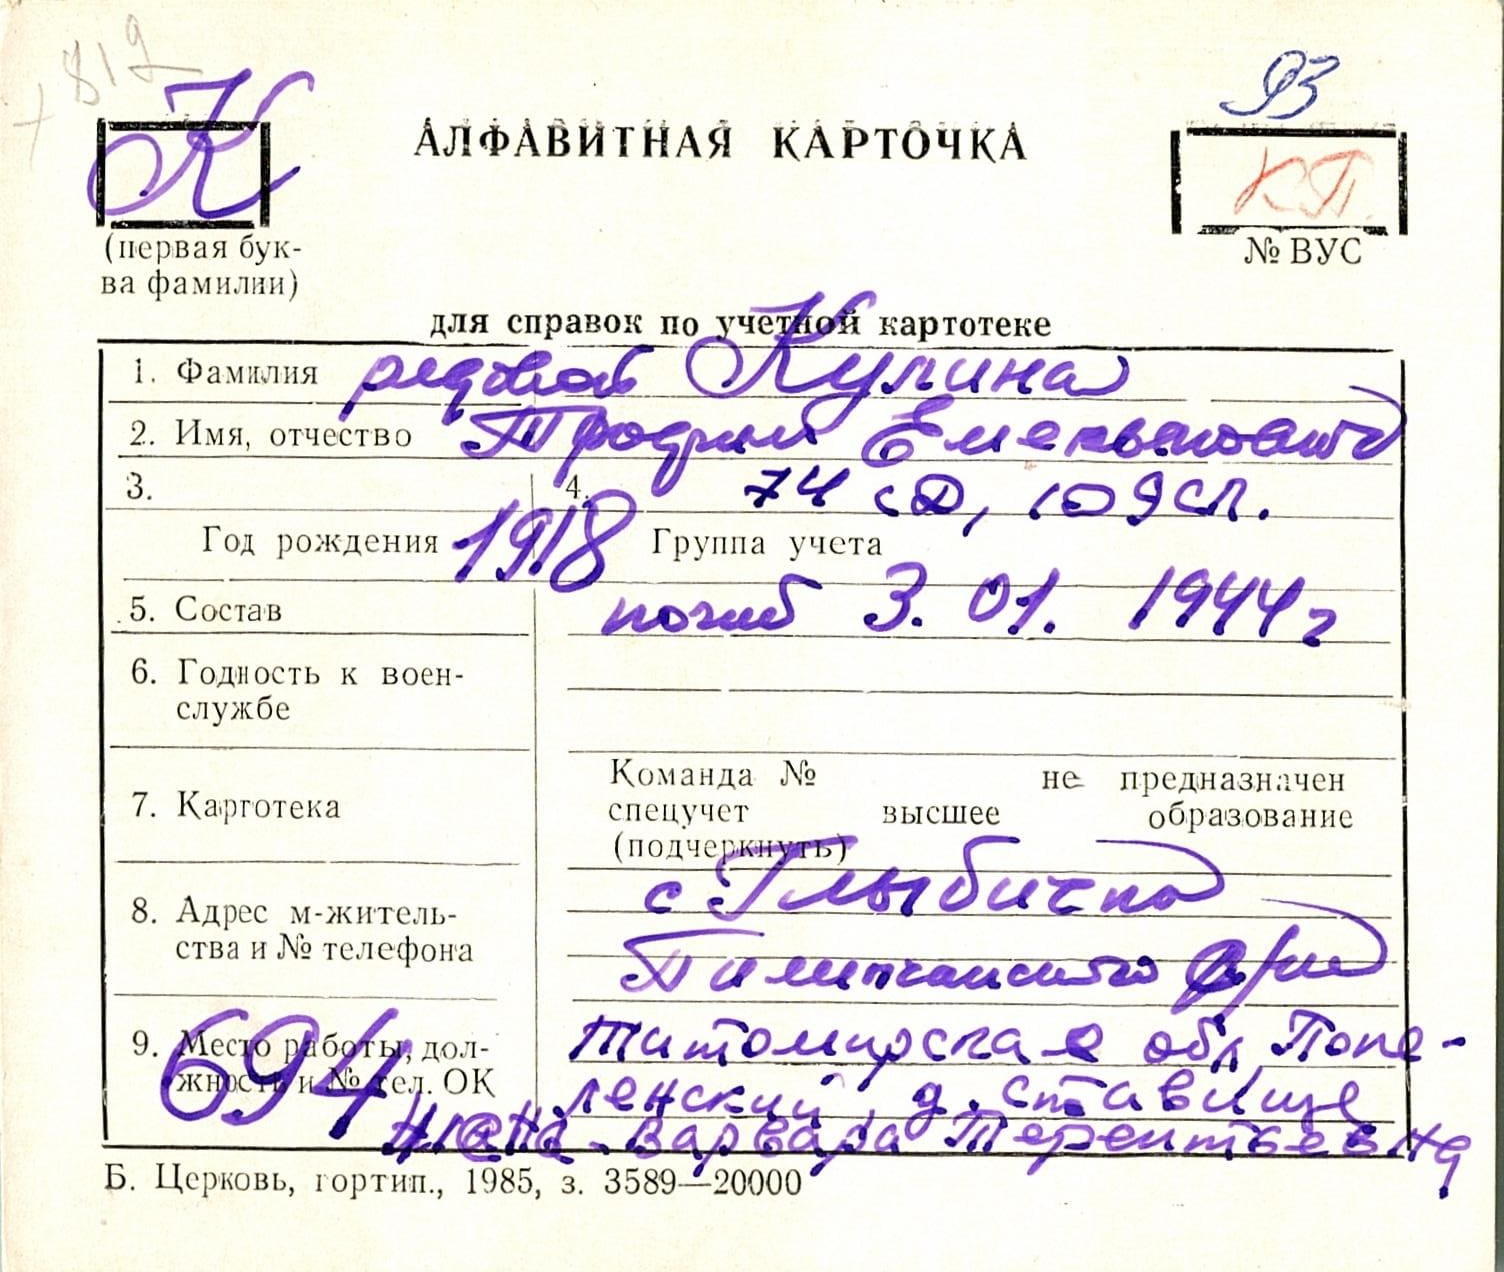 + 819
К
93
АЛФАВИТНАЯ КАРТОЧКА
КП.
(первая бук-
ва фамилии)
№ ВУС
для справок по учетной картотеке
1. Фамилия рядовой Кулина
2. Имя, отчество Трофим Емельянович
3. 4. 74 сд, 109 сп.
Год рождения 1918 Группа учета
5. Состав погиб 3.01.1944 г
6. Годность к воен-
службе
7. Картотека
Команда № не предназначен
спецучет высшее образование
(подчеркнуть)
8. Адрес м-житель-
ства и № телефона
с Глыбичка
9. Место работы, дол-
жность и № тел. ОК
694
Житомирская обл Попе-
ленский д. Ставище
жена - Варвара Терентьевна
Б. Церковь, гортип., 1985, з. 3589—20000